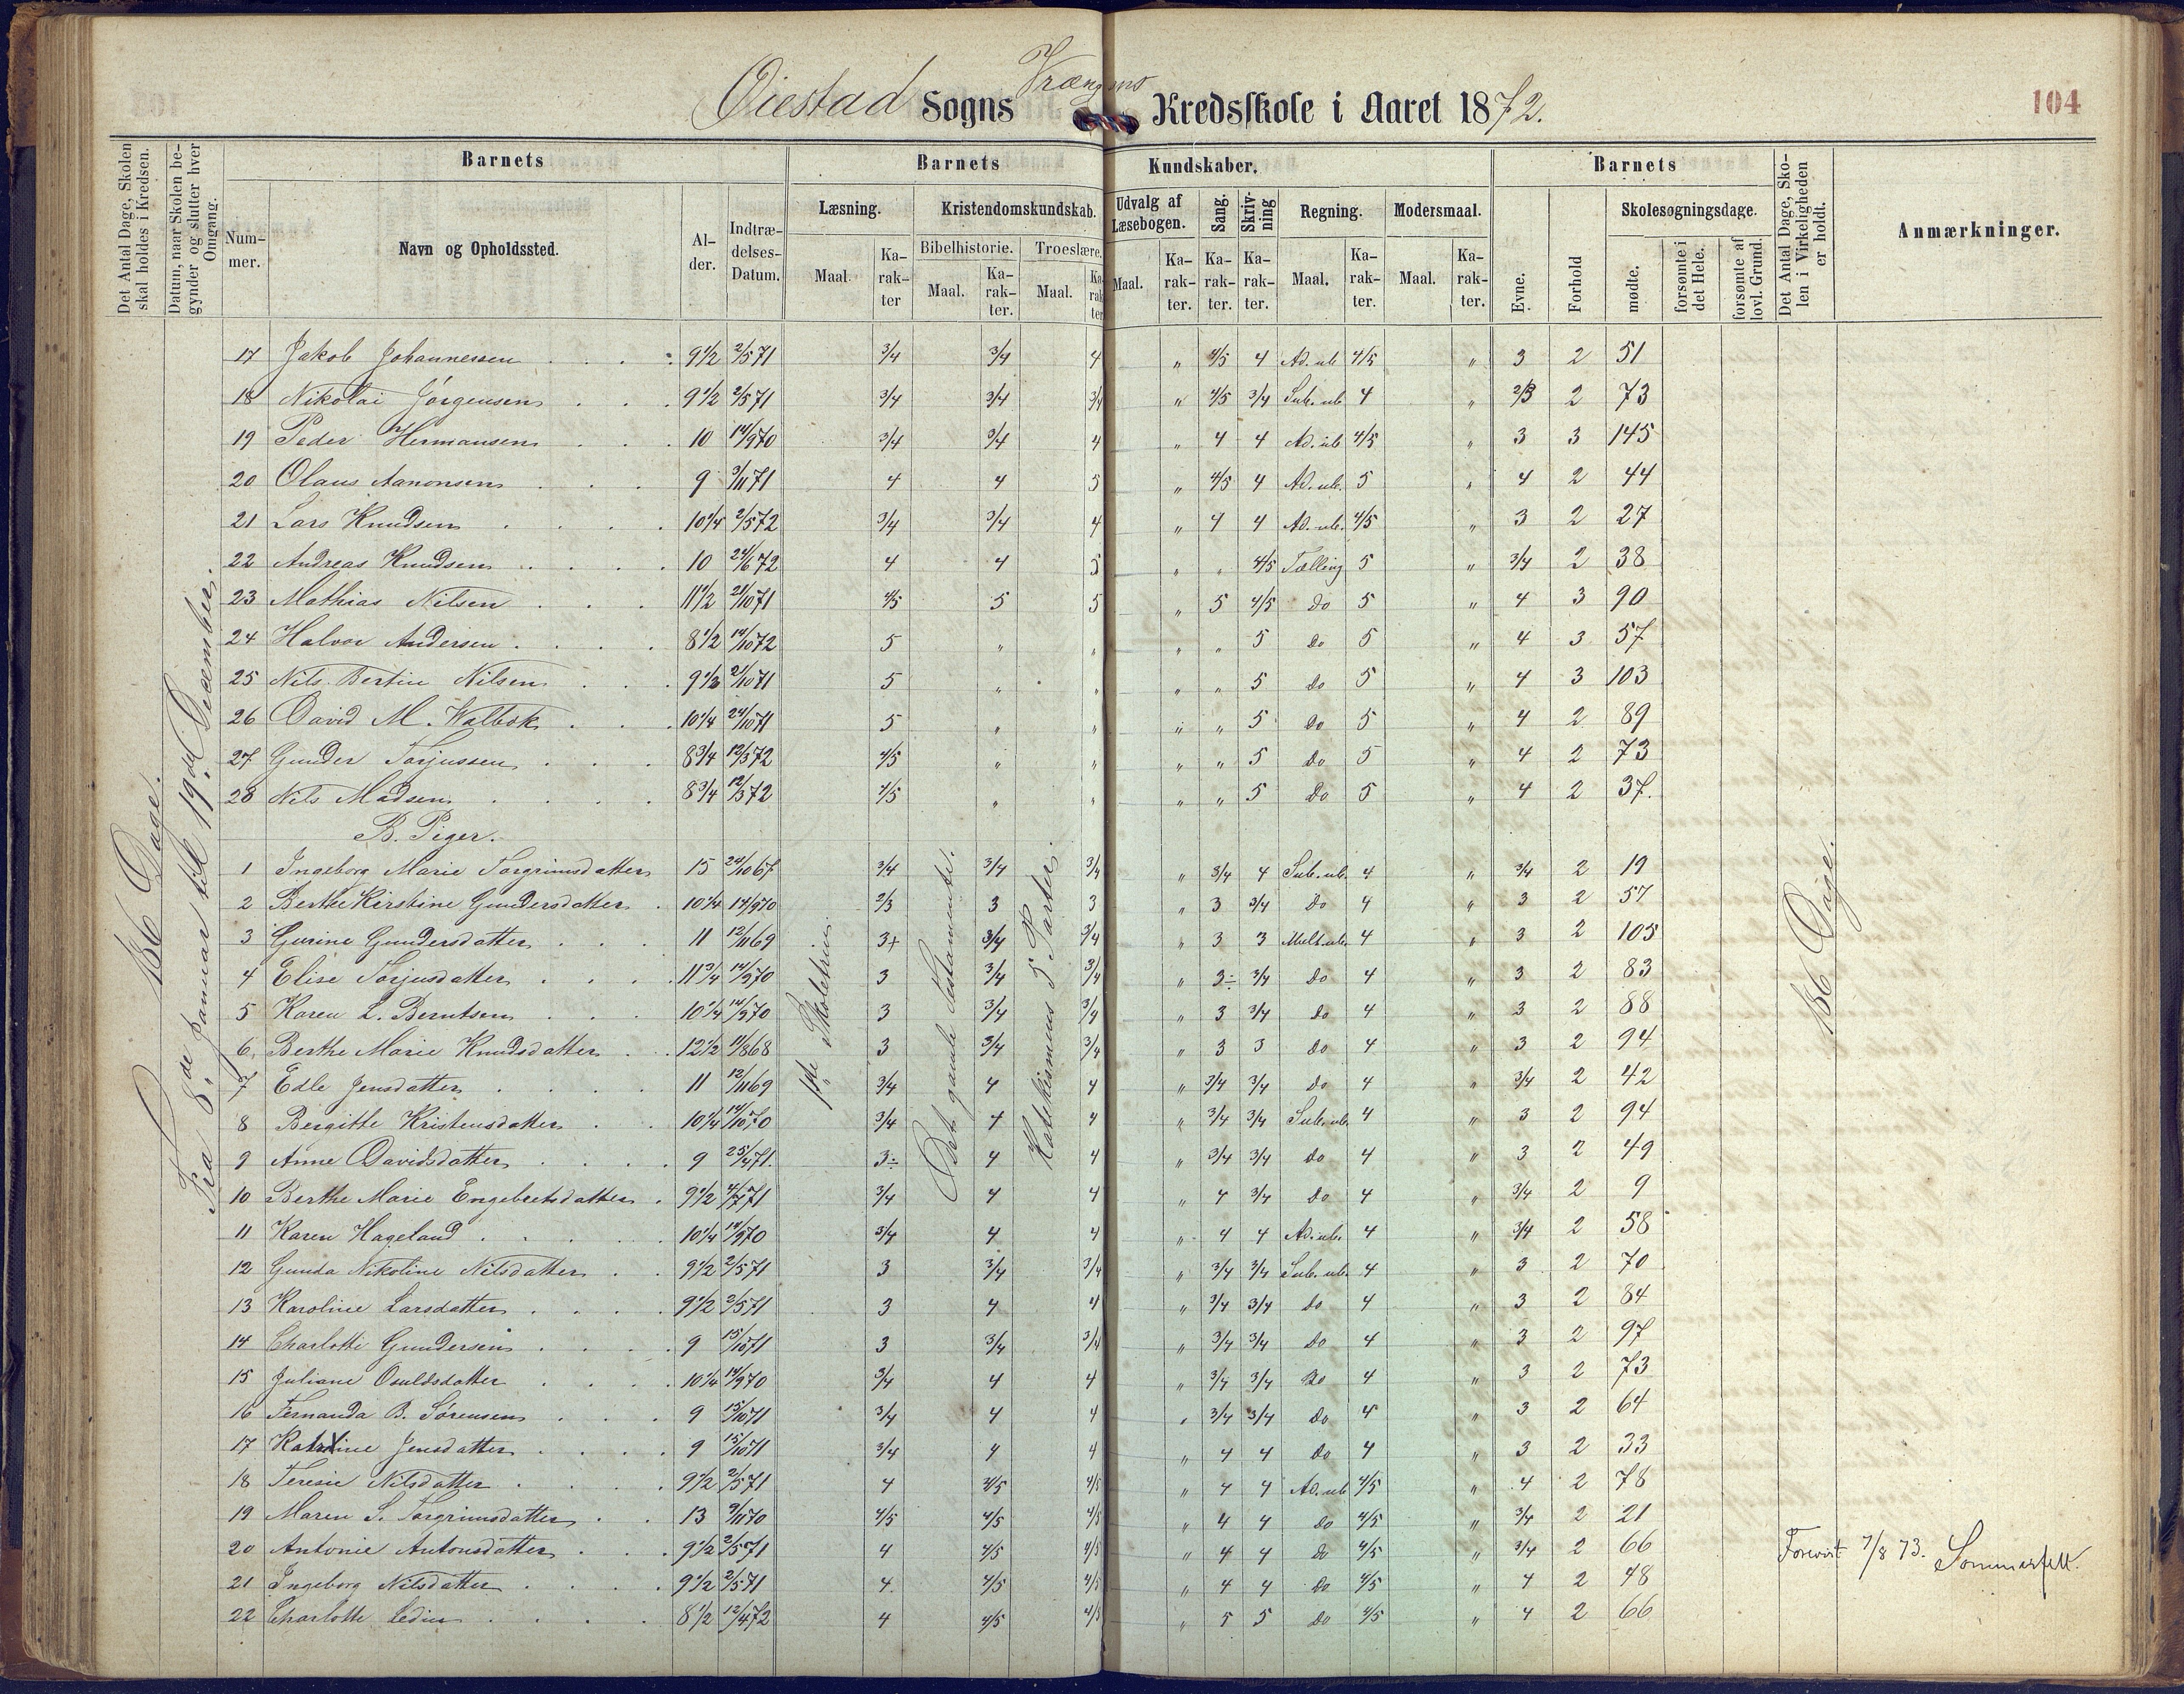 Øiestad Sogns Vrængmo Kredsskole i Aaret 1872.
104
Det Antal Dage, Skolen skal holdes i Kredsen.
Datum, naar Skolen begynder og slutter hver Omgang.
Barnets
Nummer.
Navn og Opholdssted.
Alder.
Indtrædelses-Datum.
Barnets Kundskaber.
Læsning.
Maal.
Karakter
Kristendomskundskab.
Bibelhistorie.
Maal.
Karakter.
Troeslære.
Maal.
Karakter
Udvalg af Læsebogen.
Maal.
Karakter.
Sang.
Karakter.
Skrivning
Karakter.
Regning.
Maal.
Karakter.
Modersmaal.
Maal.
Karakter.
Barnets
Evne.
Forhold
Skolesøgningsdage.
mødte.
forsømte i det Hele.
forsømte af lovl. Grund.
Det Antal Dage, Skolen i Virkeligheden er holdt.
Anmærkninger.
186 Dage.
Fra 8de Januar til 19de December.
1ste Skoletrin
Det gamle Testamente.
Katekismens 5 Parter.
186 Dage.
17 Jakob Johannessen 9 1/2 2/5 71 3/4 3/4 4 " 4/5 4 Ad. ub 4/5 " 3 2 51
18 Nikolai Jörgensen 9 1/2 2/5 71 3/4 3/4 3/4 " 4/5 3/4 Sub. ub 4 " 2/3 2 73
19 Peder Hermansen 10 14/9 70 3/4 3/4 4 " 4 4 Ad. ub 4/5 " 3 3 145
20 Olaus Aanonsen 9 3/11 71 4 4 5 " 4/5 4 Ad. ub. 5 " 4 2 44
21 Lars Knudsen 10 1/4 2/5 72 3/4 3/4 4 " 4 4 Ad. ub. 4/5 " 3 2 27
22 Andreas Knudsen 10 24/6 72 4 4 5 " " 4/5 Tælling 5 " 3/4 2 38
23 Mathias Nilsen 11 1/2 21/10 71 4/5 5 5 " 5 4/5 Do 5 " 4 3 90
24 Halvor Andersen 8 1/2 14/10 72 5 " " " " 5 Do 5 " 4 3 57
25 Nils Bertin Nilsen 9 1/2 21/10 71 5 " " " " 5 Do 5 " 4 3 103
26 David M. Walbok 10 1/4 24/10 71 5 " " " " 5 Do 5 " 4 2 89
27 Gunder Torjussen 8 3/4 12/3 72 4/5 " " " " 5 Do 5 " 4 2 73
28 Nils Madsen 8 3/4 12/3 72 4/5 " " " " 5 Do 5 " 4 2 37.
B. Piger.
1 Ingeborg Marie Torgrimsdatter 15 24/10 67 3/4 3/4 3/4 " 3/4 4 Sub. ub. 4 " 3/4 2 19
2 Berthe Kirstine Gundersdatter 10 1/4 14/9 70 2/3 3 3 " 3 3/4 Do 4 " 3 2 57
3 Gurine Gundersdatter 11 12/11 69 3+ 3/4 3/4 " 3 3 Mult. ub. 4 " 3 2 105
4 Elise Torjusdatter 11 3/4 14/9 70 3 3/4 3/4 " 3÷ 3/4 Do 4 " 3 2 83
5 Karen L. Berntsen 10 1/4 14/9 70 3 3/4 3/4 " 3 3/4 Do 4 " 3 2 88
6 Berthe Marie Knudsdatter 12 1/2 11/8 68 3 3/4 3/4 " 3 3 Do 4 " 3 2 94
7 Edle Jensdatter 11 12/11 69 3/4 4 4 " 3/4 3/4 Do 4 " 3/4 2 42
8 Bergitte Kristensdatter 10 1/4 14/10 70 3/4 4 4 " 3/4 3/4 Sub. ub. 4 " 3 2 94
9 Anne Davidsdatter 9 25/4 71. 3÷ 4 4 " 3/4 3/4 Do 4 " 3 2 49
10 Berthe Marie Engebretsdatter 9 1/2 4/7 71 3/4 4 4 " 4 3/4 Do 4 " 3/4 2 9
11 Karen Hageland 10 1/4 14/9 70 3/4 4 4 " 4 4 Ad. ub. 4 " 3/4 2 58
12 Gunda Nikoline Nilsdatter 9 1/2 2/5 71 3 3/4 3/4 " 3/4 3/4 Sub. ub. 4 " 3 2 70
13 Karoline Larsdatter 9 1/2 2/5 71 3 4 4 " 3/4 3/4 Do 4 " 3 2 84
14 Charlotte Gundersen 9 15/10 71 3 3/4 3/4 " 3/4 3/4 Do 4 " 3 2 97
15 Juliane Osuldsdatter 10 1/4 14/9 70 3/4 4 4 " 3/4 3/4 Do 4 " 3 2 73
16 Fernanda B. Sörensen 9 15/10 71 3/4 4 4 " 3/4 3/4 Do 4 " 3 2 64
17 Katrine Jensdatter 9 15/10 71 3/4 4 4 " 4 4 Do 4 " 3 2 33
18 Teresie Nilsdatter 9 1/2 2/5 71 4 4/5 4/5 " 4 4 Ad. ub 4/5 " 4 2 78
19 Maren S. Torgrimsdatter 13 9/11 70 4/5 4/5 4/5 " 4 4 Do 4/5 " 3/4 2 21
20 Antonie Antonsdatter 9 1/2 2/5 71 4 4/5 4/5 " 4 4 Do 4/5 " 3/4 2 66
21 Ingeborg Nilsdatter 9 1/2 2/5 71 4 4/5 4/5 " 4 4 Do 4/5 " 4 2 48
22 Charlotte Ledin 8 1/2 12/4 72 4 4/5 4/5 " 5 5 Do 4/5 " 4 2 66
Forevist 7/8 73. Sommerfelt.